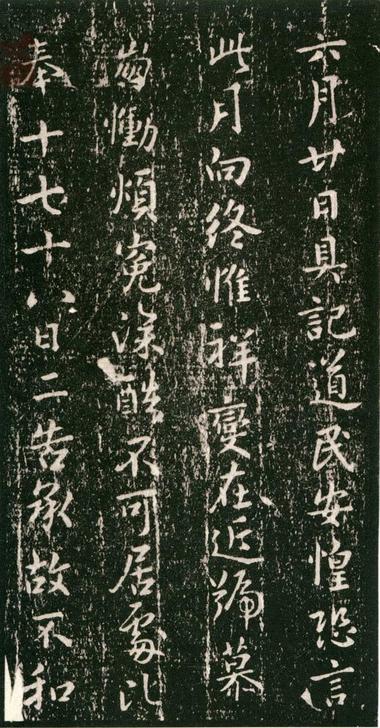 六月廿日具記道民安惶恐言
此月向終惟祥變在近號慕
崩慟煩寃深酷不可居處比
奉十七十八日二告承故不和